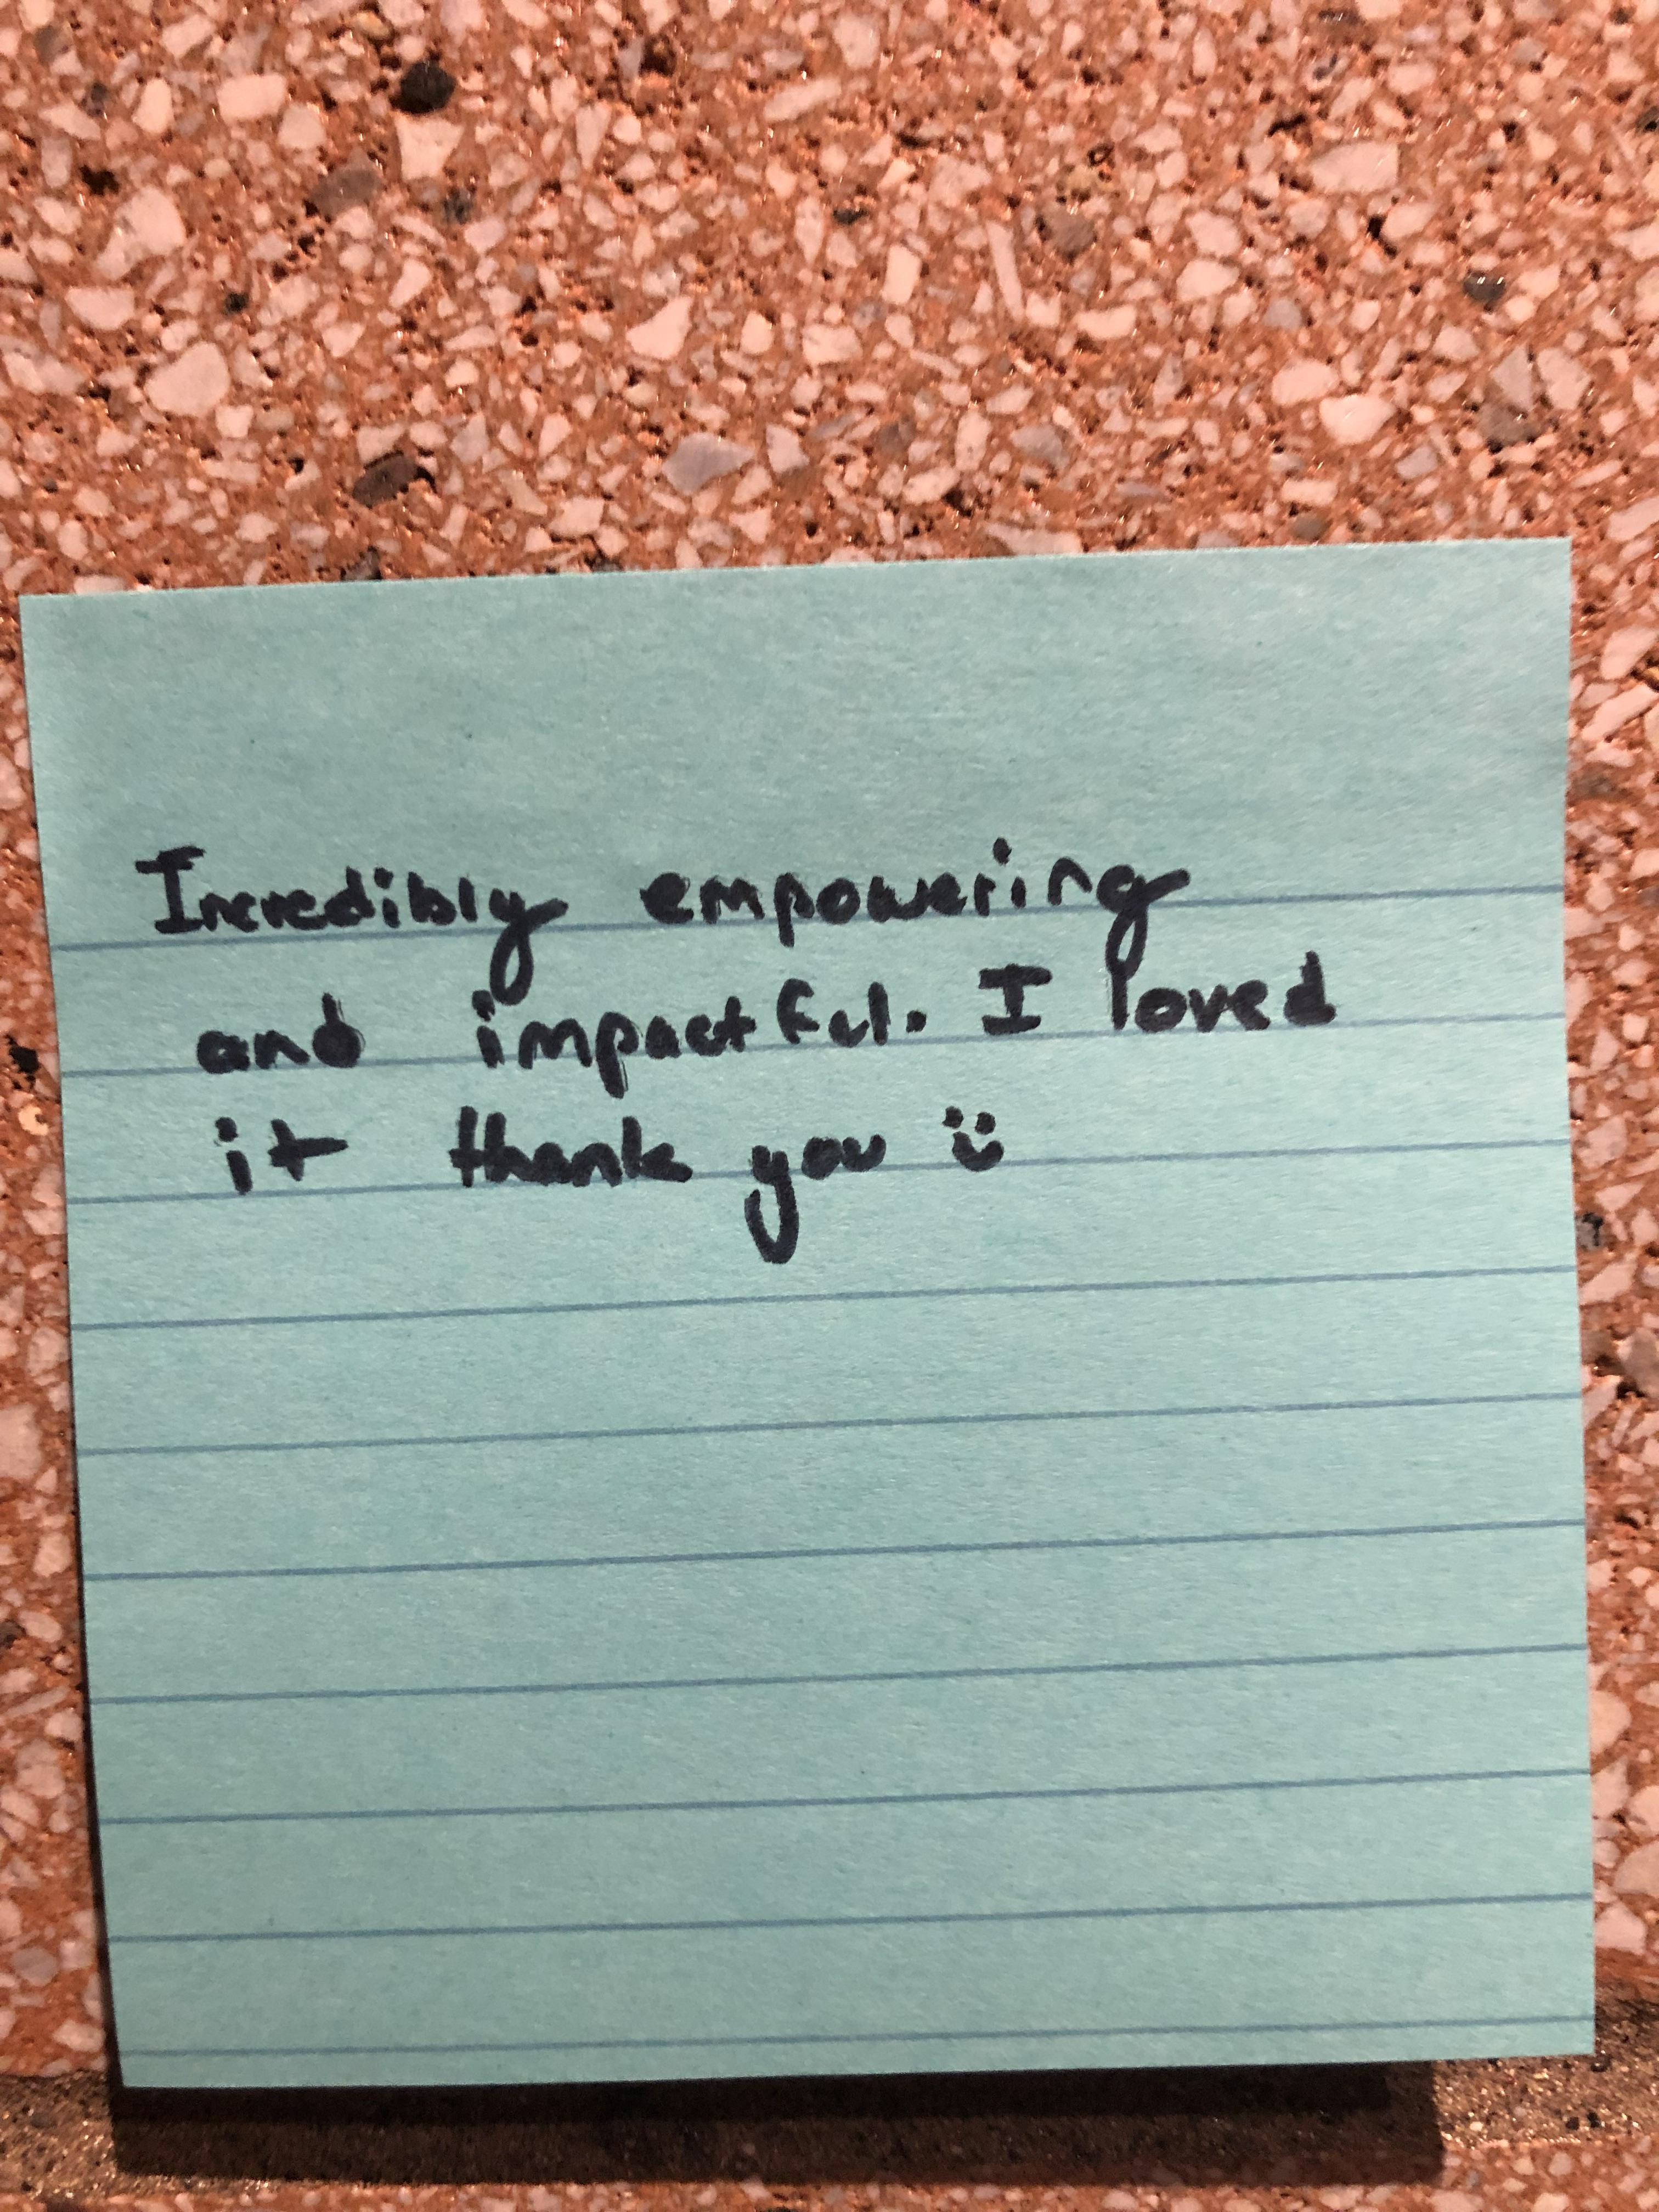 Incredibly empowering
and impactful. I loved
it thank you :)